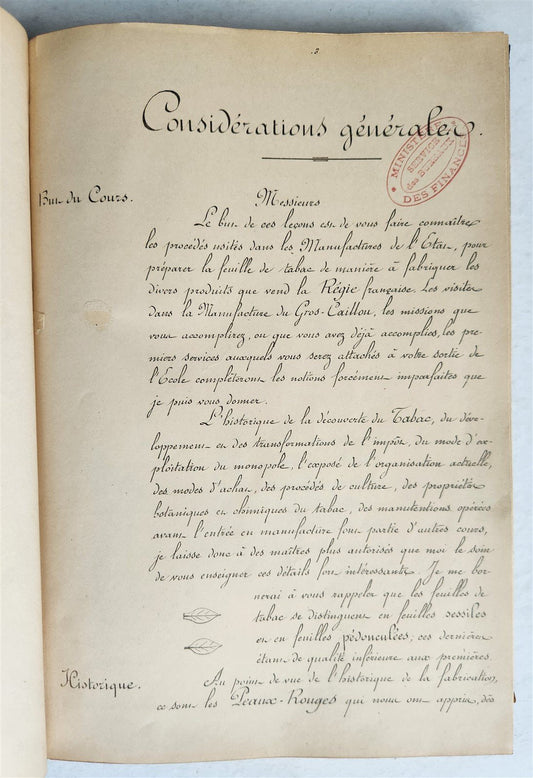 3
Considérations générales.
MINISTÈRE
SERVICE
des BUREAUX
DES FINANCES
But du Cours.
Messieurs
Le but de ces leçons est de vous faire connaître
les procédés usités dans les Manufactures de l'Etat, pour
préparer la feuille de tabac de manière à fabriquer les
divers produits que vend la Régie française. Les visites
dans la Manufacture du Gros-Caillou, les missions que
vous accomplirez, ou que vous avez déjà accomplies, les pre-
miers services auxquels vous serez attachés à votre sortie de
l'Ecole complèteront les notions forcément imparfaites que
je puis vous donner.
L'historique de la découverte du Tabac, du déve-
loppement et des transformations de l'impôt, du mode d'ex-
ploitation du monopole, l'exposé de l'organisation actuelle,
des modes d'achat, des procédés de culture, des propriétés
botaniques et chimiques du tabac, des manutentions opérées
avant l'entrée en manufacture font partie d'autres cours,
je laisse donc à des maîtres plus autorisés que moi le soin
de vous enseigner ces détails fort intéressants. Je me bor-
nerai à vous rappeler que les feuilles de
tabac se distinguent en feuilles sessiles
et en feuilles pédonculées; ces dernières
étant de qualité inférieure aux premières.
Historique.
Au point de vue de l'historique de la fabrication,
ce sont les Peaux-Rouges qui nous ont appris, dès